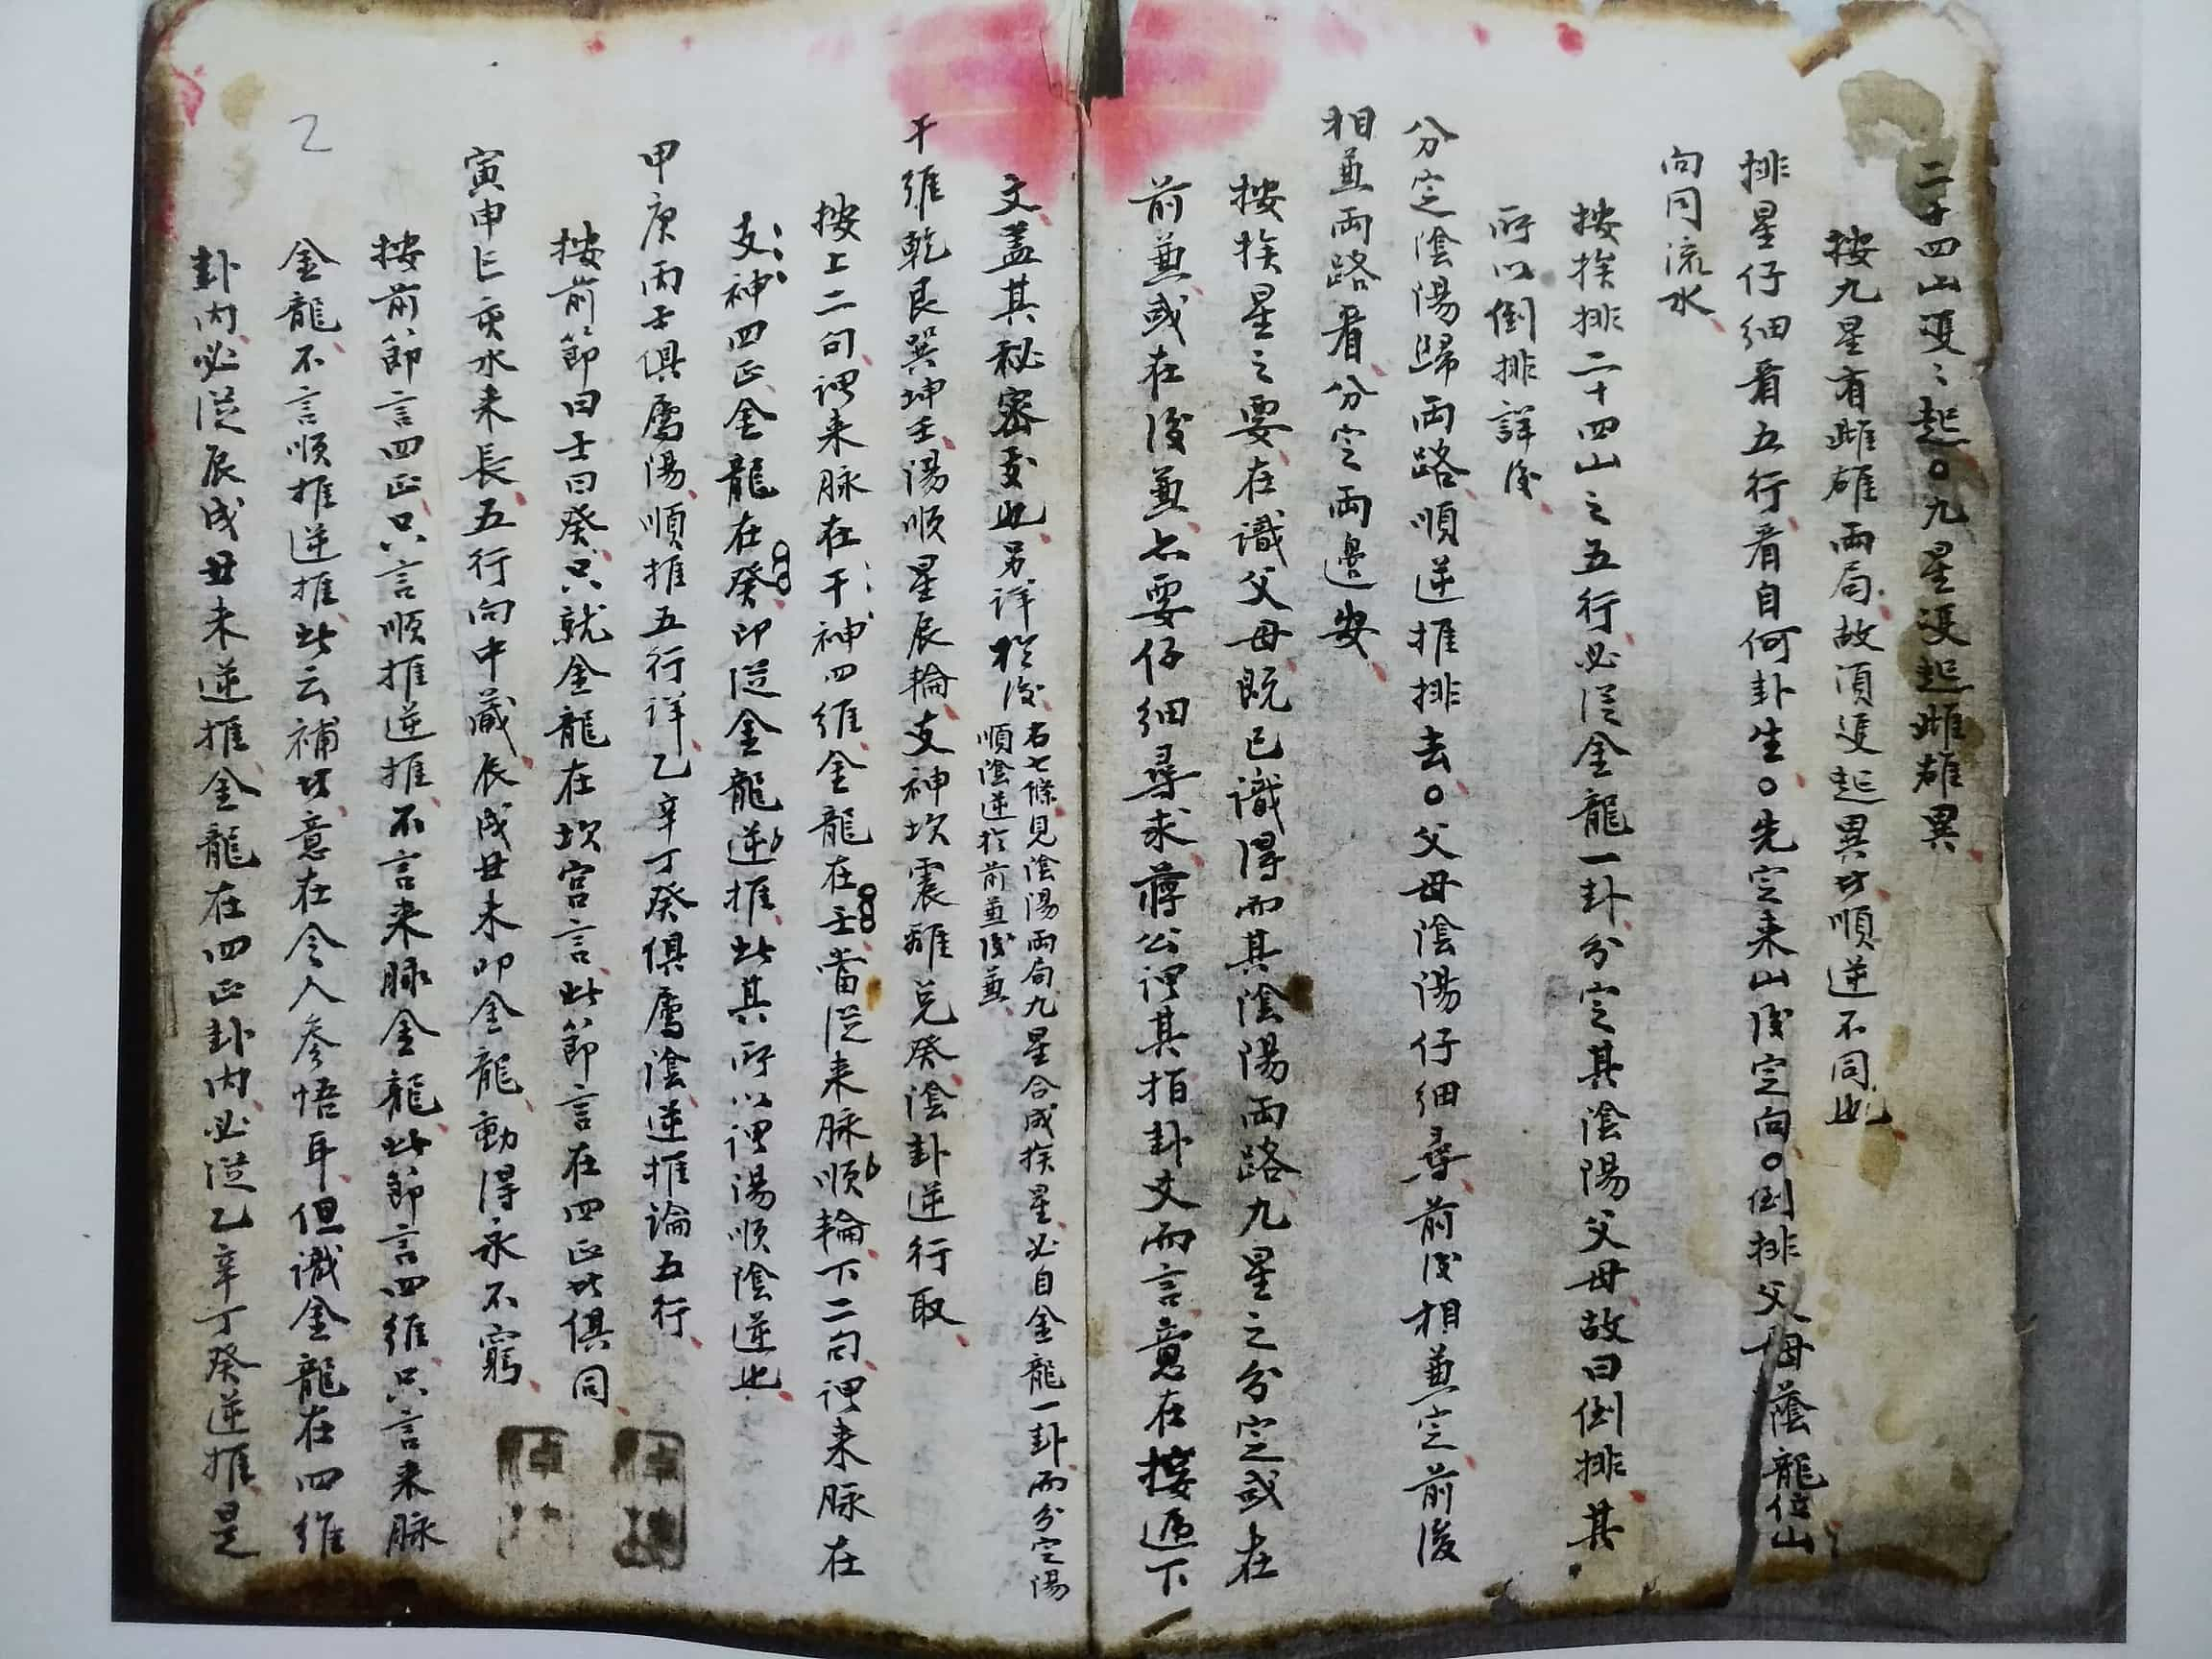 二十四山雙〻起○九星雙起雌雄異
按九星有雌雄兩局故須雙起異功順逆不同也
排星仔細看五行看自何卦生○先定来山後定向○倒排父母蔭龍位山
向同流水
按挨排二十四山之五行必從金龍一卦分定其陰陽父母故曰倒排其
所以倒排詳後
分定陰陽歸兩路順逆推排去○父母陰陽仔細尋前後相兼定前後
相兼兩路看分定兩邊安
按挨星之要在識父母既已識得而其陰陽兩路九星之分定或在
前兼或在後兼上要仔細尋求蔣公謂其指卦爻而言意在接遞下
文蓋其秘密文也另詳於後
右七條見陰陽兩局九星合成挨星必自金龍一卦而分定陽
順陰逆於前兼後兼
干維乾艮巽坤壬陽順星辰輪支神坎震離兌癸陰卦逆行取
按上二句謂来脉在干神四維金龍在壬當從来脉順輪下二句謂来脉在
支神四正金龍在癸即從金龍逆推此其所以謂陽順陰逆也
甲庚丙壬俱屬陽順推五行詳乙辛丁癸俱屬陰逆推論五行
按前節曰壬曰癸只就金龍在坎宮言此節言在四正此俱同
寅申巳亥水来長五行向中藏辰戌丑未叩金龍動得永不窮
按前節言四正只言順推逆推不言来脉金龍此節言四維只言来脉
金龍不言順推逆推此云補功意在令人參悟耳但識金龍在四維
卦内必從辰戌丑未逆推金龍在四正卦内必從乙辛丁癸逆推是
2